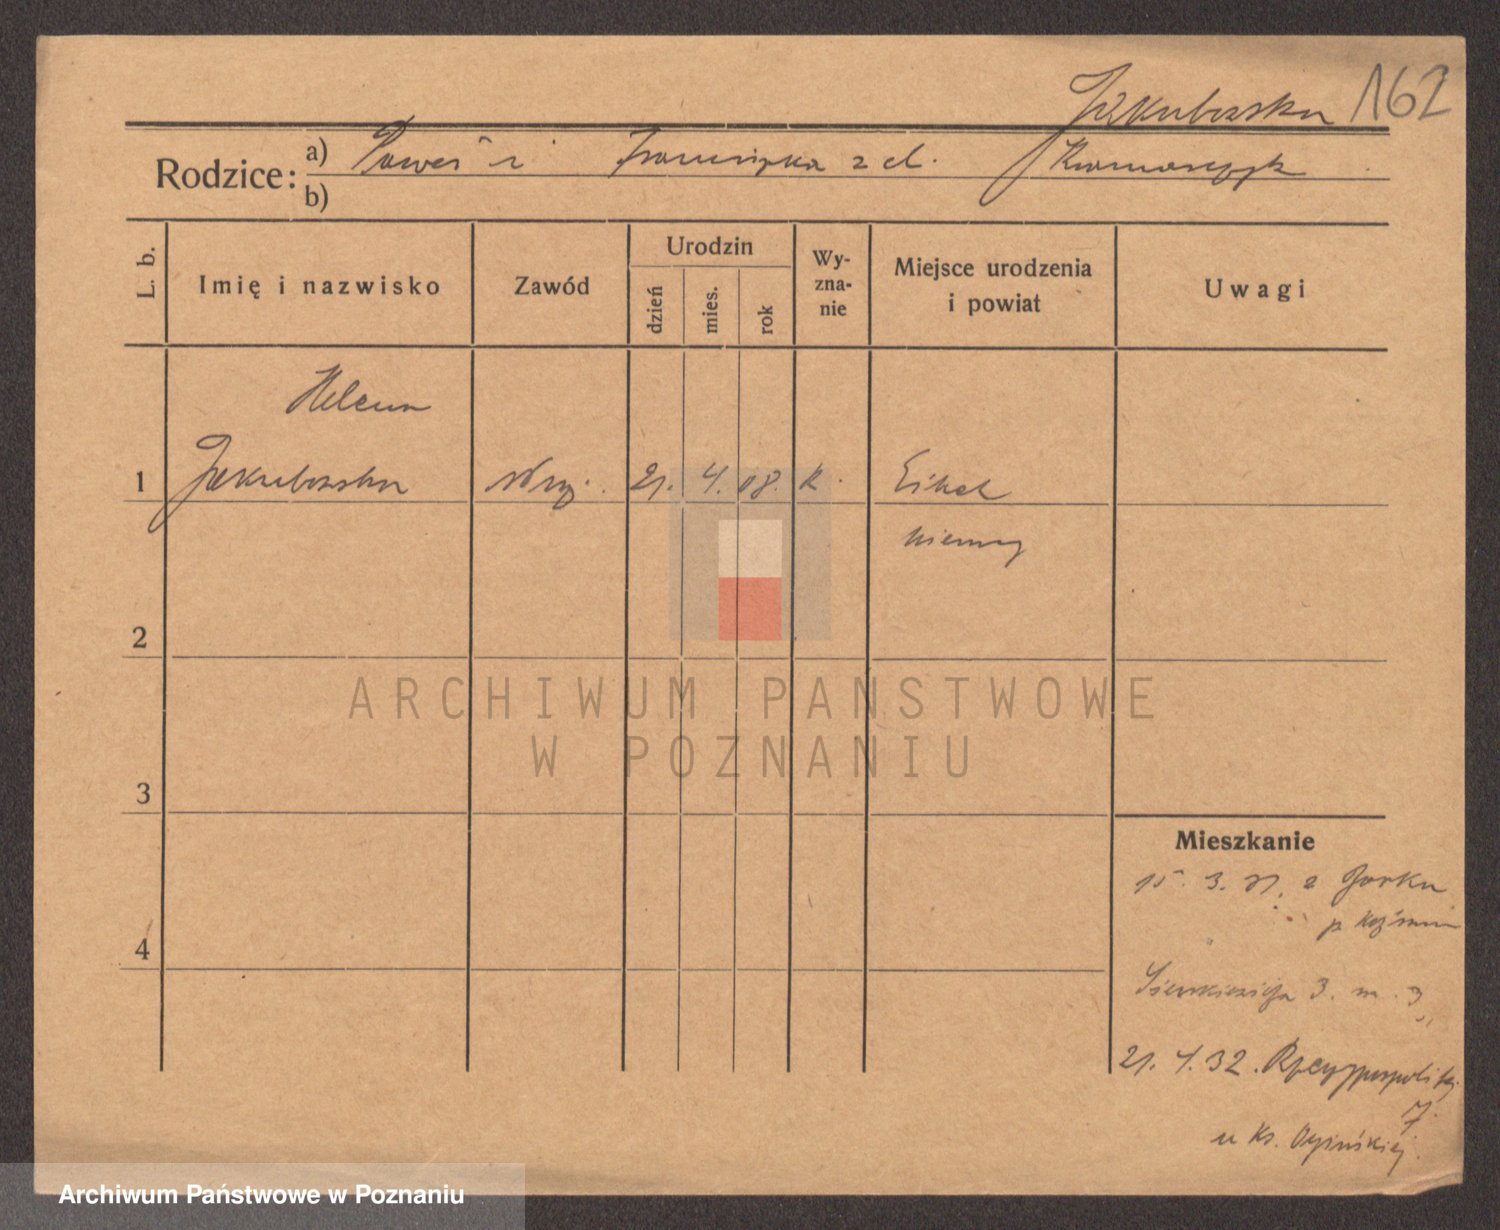 Jakubowska 162
Rodzice: a) Paweł i Franciszka z d. Kramarczyk
b)
L. b.
Imię i nazwisko
Zawód
Urodzin
dzień
mies.
rok
Wy-
zna-
nie
Miejsce urodzenia
i powiat
Uwagi
Helena
1 Jakubowska 21. 4. 08. k. Eikel
Niemcy
2
3
4
ARCHIWUM PAŃSTWOWE
W POZNANIU
Mieszkanie
15. 3. 31. z Borku
p. Koźmin
Sienkiewicza 3. m. 3
21. 4. 32. Rzeczypospolitej
7.
u Ks. Ogińskiej
Archiwum Państwowe w Poznaniu